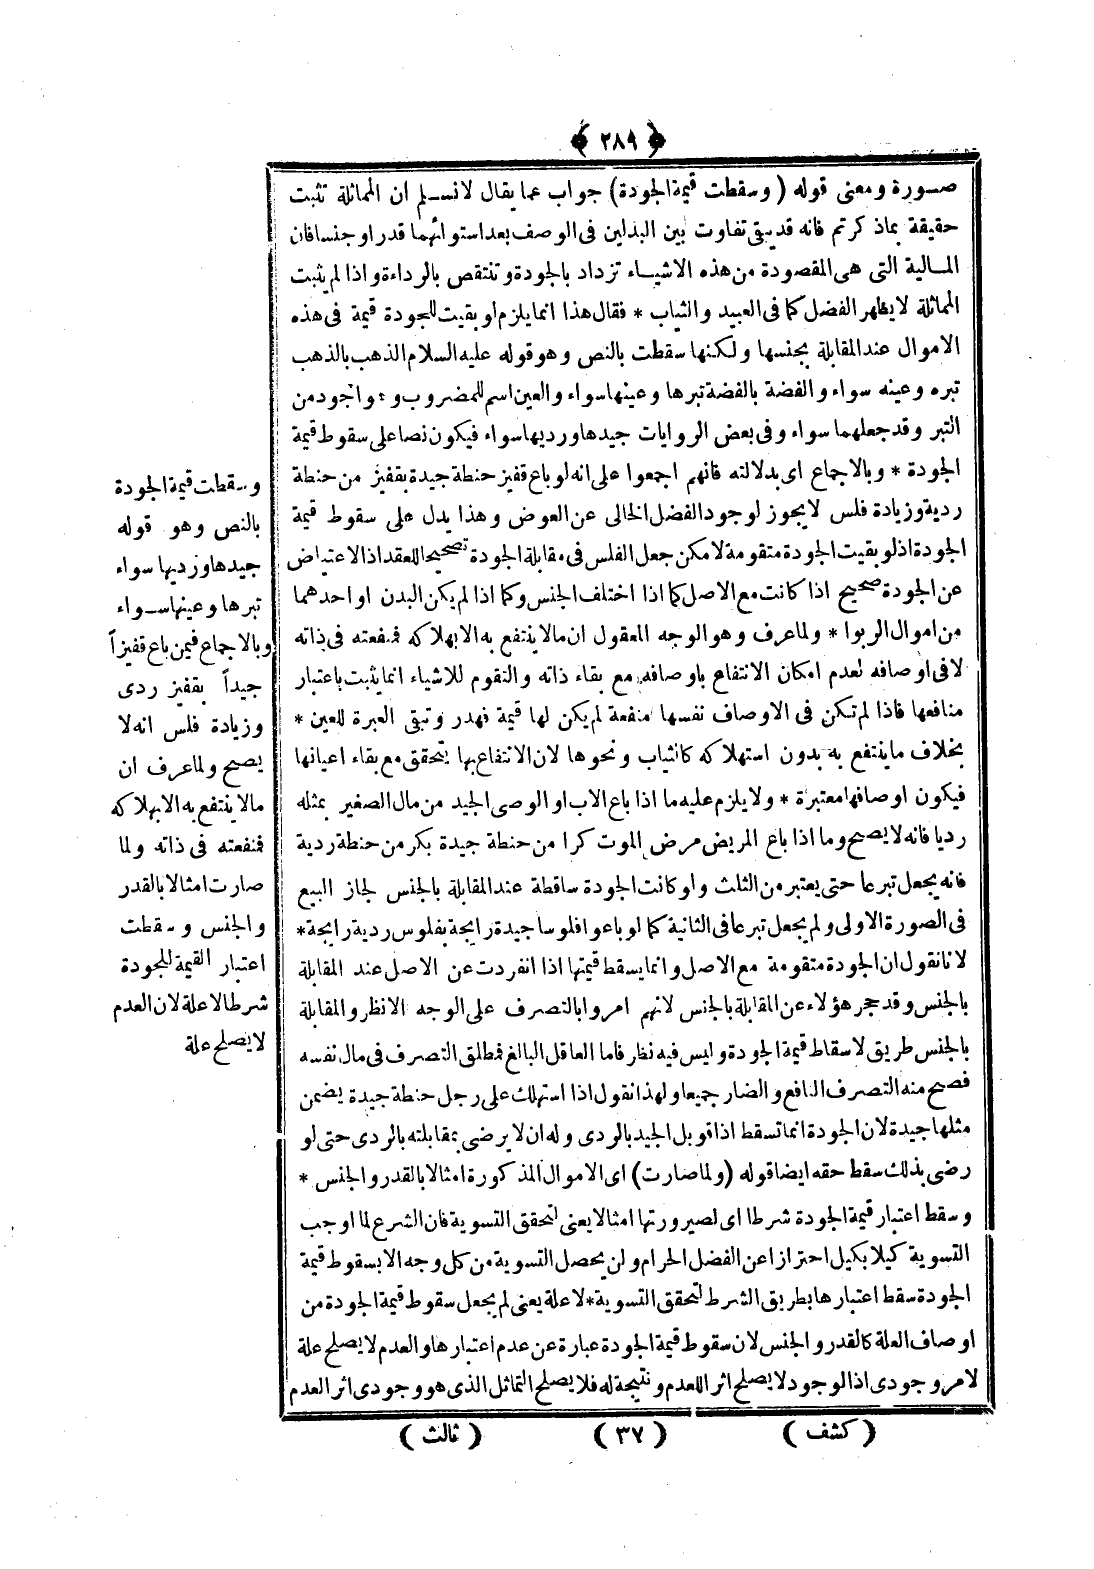 ﴿ ٢٨٩ ﴾
صورة ومعنى قوله ( وسقطت قيمة الجودة) جواب عما يقال لانسلم ان المماثلة تثبت
حقيقة بماذكرتم فانه قديبقى تفاوت بين البدلين فى الوصف بعداستوائهما قدراوجنسافان
المالية التى هى المقصودة من هذه الاشياء تزداد بالجودة وتنتقص بالرداءة واذا لم يثبت
المماثلة لايظهر الفضل كما فى العبيد والثياب * فقال هذا انمايلزم لو بقيت للجودة قيمة فى هذه
الاموال عندالمقابلة بجنسها ولكنها سقطت بالنص وهو قوله عليه السلام الذهب بالذهب
تبره وعينه سواء والفضة بالفضة تبرها وعينها سواء والعين اسم للمضروب و اجود من
التبر وقدجعلهما سواء وفى بعض الروايات جيدها ورديها سواء فيكون نصا على سقوط قيمة
الجودة * وبالاجماع اى بدلالته فانهم اجمعوا على انه لو باع قفيز حنطة جيدة بقفيز من حنطة
ردية وزيادة فلس لايجوز لوجود الفضل الخالى عن العوض وهذا يدل على سقوط قيمة
الجودة اذلو بقيت الجودة متقومة لامكن جعل الفلس فى مقابلة الجودة تصحيحا للعقد اذ الاعتياض
عن الجودة صحيح اذا كانت مع الاصل كما اذا اختلف الجنس وكما اذا لم يكن البدن او احدهما
من اموال الربوا * ولما عرف وهو الوجه المعقول ان مالاينتفع به الابهلاكه فمنفعته فى ذاته
لافى اوصافه لعدم امكان الانتفاع باوصافه مع بقاء ذاته والتقوم للاشياء انمايثبت باعتبار
منافعها فاذا لم تكن فى الاوصاف نفسها منفعة لم يكن لها قيمة فهدر وتبقى العبرة للعين *
بخلاف ماينتفع به بدون استهلاكه كالثياب ونحوها لان الانتفاع بها يتحقق مع بقاء اعيانها
فيكون اوصافها معتبرة * ولايلزم عليه ما اذا باع الاب او الوصى الجيد من مال الصغير بمثله
رديا فانه لايصح وما اذا باع المريض مرض الموت كرا من حنطة جيدة بكر من حنطة ردية
فانه يجعل تبرعا حتى يعتبر من الثلث ولوكانت الجودة ساقطة عندالمقابلة بالجنس لجاز البيع
فى الصورة الاولى ولم يجعل تبرعا فى الثانية كما لو باعوا فلوسا جيدة رايجة بفلوس ردية رايجة *
لانانقول ان الجودة متقومة مع الاصل وانمايسقط قيمتها اذا انفردت عن الاصل عند المقابلة
بالجنس وقد حجر هؤلاء عن المقابلة بالجنس لانهم امروا بالتصرف على الوجه الانظر والمقابلة
بالجنس طريق لاسقاط قيمة الجودة وليس فيه نظر فاما العاقل البالغ فمطلق التصرف فى مال نفسه
فصح منه التصرف النافع والضار جميعا ولهذا نقول اذا استهلك على رجل حنطة جيدة يضمن
مثلها جيدة لان الجودة انماتسقط اذا قوبل الجيد بالردى وله ان لايرضى بمقابلته بالردى حتى لو
رضى بذلك سقط حقه ايضا قوله (ولما صارت) اى الاموال المذكورة امثالا بالقدر والجنس *
وسقط اعتبار قيمة الجودة شرطا اى لصيرورتها امثالا يعنى لتحقق التسوية فان الشرع لما اوجب
التسوية كيلا بكيل احترازا عن الفضل الحرام ولن يحصل التسوية من كل وجه الابسقوط قيمة
الجودة سقط اعتبارها بطريق الشرط لتحقق التسوية * لاعلة يعنى لم يجعل سقوط قيمة الجودة من
اوصاف العلة كالقدر والجنس لان سقوط قيمة الجودة عبارة عن عدم اعتبارها والعدم لايصلح علة
لامر وجودى اذ الوجود لايصلح اثر اللعدم ونتيجة له فلايصلح التماثل الذى هو وجودى اثر العدم
وسقطت قيمة الجودة
بالنص وهو قوله
جيدها ورديها سواء
تبرها وعينها سواء
وبالاجماع فيمن باع قفيزاً
جيداً بقفيز ردى
وزيادة فلس انه لا
يصح ولما عرف ان
مالاينتفع به الابهلاكه
فمنفعته فى ذاته ولما
صارت امثالا بالقدر
والجنس وسقطت
اعتبار القيمة للجودة
شرطا لاعلة لان العدم
لايصلح علة
( كشف ) ( ٣٧ ) ( ثالث )